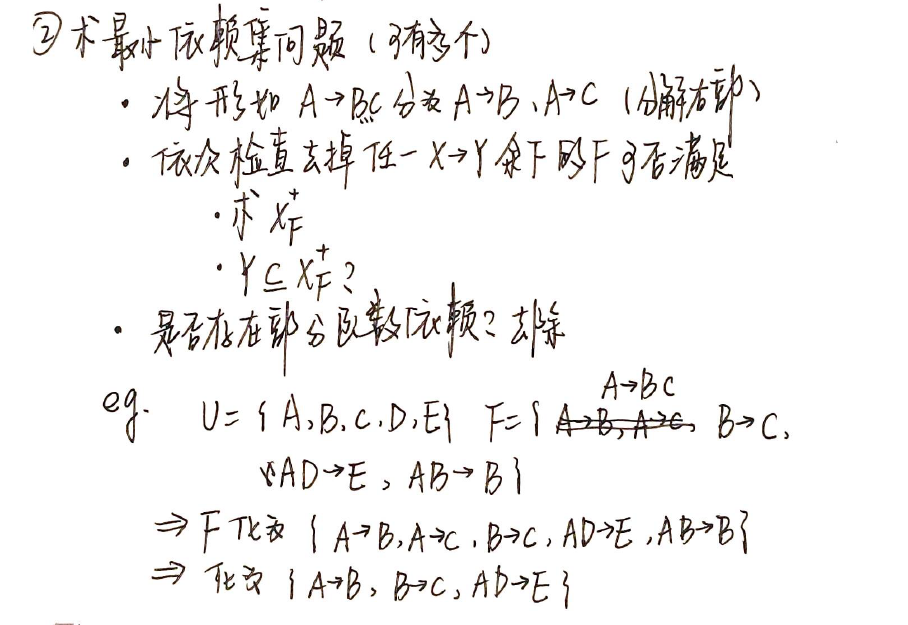 ② 求最小依赖集问题（可有多个）
· 将形如 A→BC 分为 A→B、A→C（分解右部）
· 依次检查去掉任一 X→Y 余下的F可否满足
· 求 X⁺F
· Y ⊆ X⁺F ?
· 是否存在部分函数依赖？去除
A→BC
eg. U={A,B,C,D,E} F={A→B,A→C, B→C,
AD→E, AB→B}
⇒ F 化为 {A→B,A→C,B→C,AD→E,AB→B}
⇒ 化为 {A→B, B→C, AD→E}